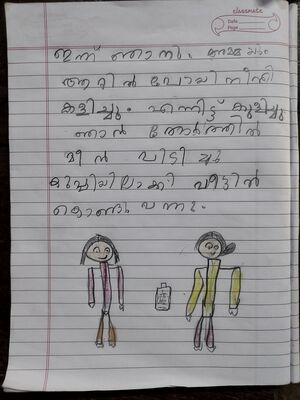 classmate
Date
Page
ഇന്ന് ഞാനും അമ്മയും
ആറ്റിൽ പോയി നീന്തി
കളിച്ചു. എന്നിട്ട് കുളിച്ചു
ഞാൻ തോർത്തിൽ
മീൻ പിടിച്ചു
കുപ്പിയിലാക്കി വീട്ടിൽ
കൊണ്ടുവന്നു.